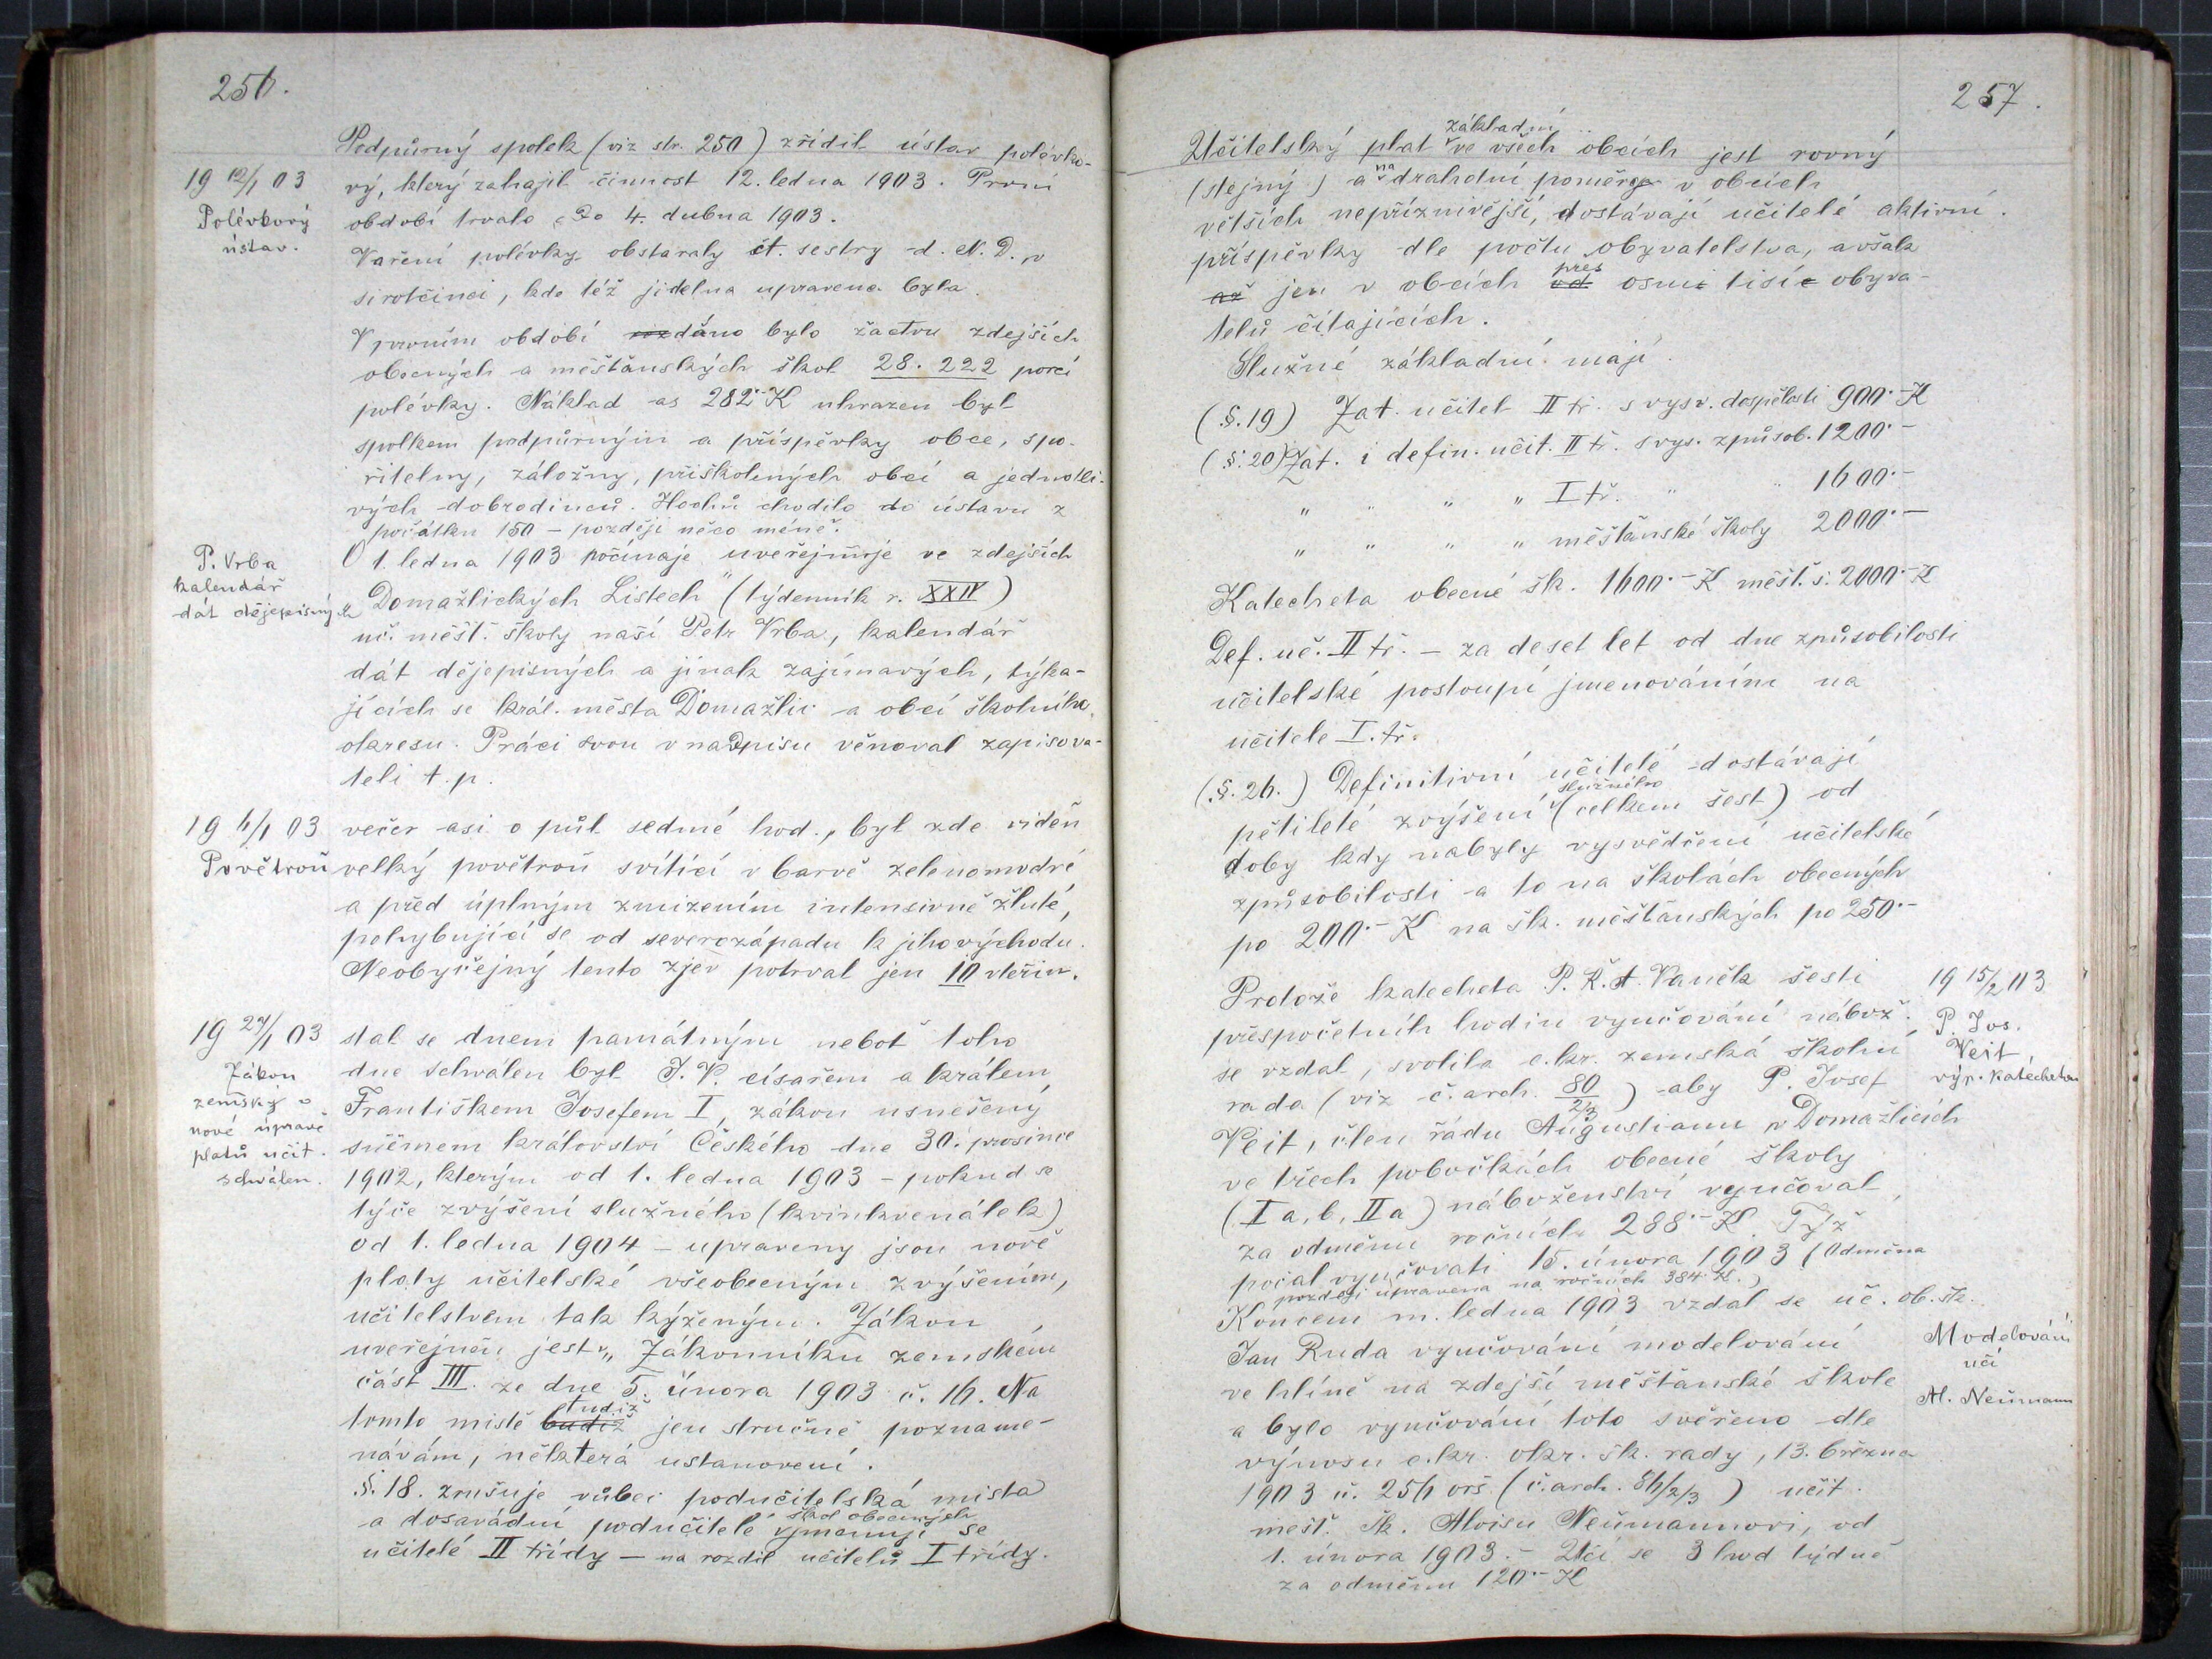 256.
Podpůrný spolek (viz str. 250) zřídil ústav polévko-
19 12/1 03
Polévkový
ústav.
vý, který zahajil činnost 12. ledna 1903. První
období trvalo do 4. dubna 1903.
Vaření polévky obstaraly ct. sestry d. N. D. v
sirotčinci, kde též jídelna upravena byla.
V prvním období rozdáno bylo žactvu zdejších
obecných a měšťanských škol 28.222 porcí
polévky. Náklad as 282·- K uhrazen byl
spolkem podpůrným a příspěvky obce, spo-
řitelny, záložny, přiškolených obcí a jednotli-
vých dobrodinců. Hochů chodilo do ústavu z
počátku 150 – později něco méně.
P. Vrba
kalendář
dát dějepisných
O 1. ledna 1903 počínaje uveřejňuje ve zdejších
Domažlických Listech" (týdenník r. XXIV)
uč. měšť. školy naší Petr Vrba, kalendář
dát dějepisných a jinak zajímavých, týka-
jících se král. města Domažlic a obcí školního
okresu. Práci svou v nadpisu věnoval zapisova-
teli t. p.
19 6/1 03
Povětroň
večer asi o půl sedmé hod., byl zde viděn
velký povětroň svítící v barvě zelenomodré
a před úplným zmizením intensivně žluté,
pohybující se od severozápadu k jihovýchodu.
Neobyčejný tento zjev potrval jen 10 vteřin.
19 27/1 03
Zákon
zemský o
nové úpravě
platů učit.
schválen.
stal se dnem památným neboť toho
dne schválen byl J. V. císařem a králem
Františkem Josefem I, zákon usnešený
sněmem království Českého dne 30. prosince
1902, kterým od 1. ledna 1903 – pokud se
týče zvýšení služného (kvinkvenálek)
od 1. ledna 1904 – upraveny jsou nově
platy učitelské všeobecným zvýšením,
učitelstvem tak kýženým. Zákon
uveřejněn jest v „Zákonníku zemském
část III. ze dne 5. února 1903 č. 16. Na
tomto místě budiž tudíž jen stručně pozname-
návám, některá ustanovení.
§. 18. zrušuje vůbec podučitelská místa
a dosavádní podučitelé škol obecných jmenují se
učitelé II třídy – na rozdíl učitelů I třídy.
257.
Učitelský plat základní ve všech obcích jest rovný
(stejný) a na drahotní poměry v obcích
větších nepříznivější, dostávají učitelé aktivní
příspěvky dle počtu obyvatelstva, avšak
až jen v obcích od přes osmi tisíc obyva-
telů čítajících.
Služné základní mají
(§. 19) Zat. učitel II tř. s vysv. dospělosti 900·- K
(§. 20) Zat. i defin. učit. II tř. s vys. způsob. 1200·-
" " " " I tř. " " 1600·-
" " " " měšťanské školy 2000·-
Katecheta obecné šk. 1600·- K měšť. š. 2000·- K
Def. uč. II tř. – za deset let od dne způsobilosti
učitelské postoupí jmenováním na
učitele I. tř.
(§. 26.) Definitivní učitelé dostávají
pětileté zvýšení služného (celkem šest) od
doby kdy nabyly vysvědčení učitelské
způsobilosti a to na školách obecných
po 200·- K na šk. měšťanských po 250·-
19 15/2 03
P. Jos.
Veit
výp. katecheta
Protože katecheta P. R. A. Vaněk šesti
přespočetních hodin vyučování nábož.
se vzdal, svolila c. kr. zemská školní
rada (viz č. arch. 80 2/3) aby P. Josef
Veit, člen řádu Augustianu v Domažlicích
ve třech pobočkách obecné školy
(I a, b, II a) náboženství vyučoval
za odměnu ročních 288·- K. Týž
počal vyučovati 15. února 1903 (Odměna
později upravena na ročních 384 K.)
Koncem m. ledna 1903 vzdal se uč. ob. šk.
Modelování
učí
Al. Neümann
Jan Ruda vyučování modelování
ve hlíně na zdejší měšťanské škole
a bylo vyučování toto svěřeno dle
výnosu c. kr. okr. šk. rady, 13. března
1903 č. 256 orš (č. arch. 86/2/3) učit.
mešť. šk. Aloisu Neümannovi, od
1. února 1903. – Učí se 3 hod týdně
za odměnu 120·- K